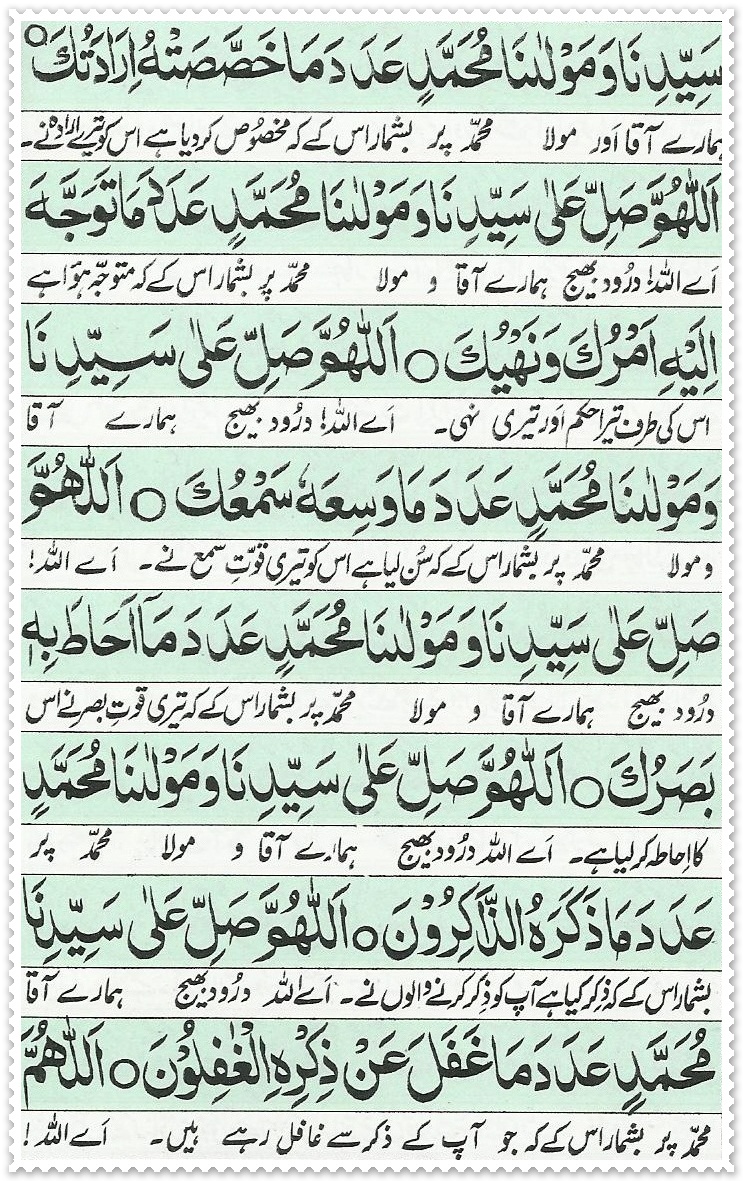 سَيِّدِنَا وَمَوْلٰىنَا مُحَمَّدٍ عَدَدَ مَا خَصَّصَتْهُ اِرَادَتُكَ ○
ہمارے آقا اَور مولا محمّد پر بشمار اس کے کہ مخصُوص کر دیا ہے اس کو تیرے ارادہ نے۔
اَللّٰهُمَّ صَلِّ عَلٰى سَيِّدِنَا وَمَوْلٰىنَا مُحَمَّدٍ عَدَدَ مَا تَوَجَّهَ
اَے اللہ! درُود بھیج ہمارے آقا و مولا محمّد پر بشمار اس کے کہ متوجّہ ہؤا ہے
اِلَيْهِ اَمْرُكَ وَنَهْيُكَ ○ اَللّٰهُمَّ صَلِّ عَلٰى سَيِّدِنَا
اس کی طرف تیرا حکم اَور تیری نہی۔ اَے اللہ! درُود بھیج ہمارے آقا
وَمَوْلٰىنَا مُحَمَّدٍ عَدَدَ مَا وَسِعَهٗ سَمْعُكَ ○ اَللّٰهُمَّ
و مولا محمّد پر بشمار اس کے کہ سُن لیا ہے اس کو تیری قوّتِ سمع نے۔ اَے اللہ!
صَلِّ عَلٰى سَيِّدِنَا وَمَوْلٰىنَا مُحَمَّدٍ عَدَدَ مَآ اَحَاطَ بِهٖ
درُود بھیج ہمارے آقا و مولا محمّد پر بشمار اس کے کہ تیری قوتِ بصر نے اس
بَصَرُكَ ○ اَللّٰهُمَّ صَلِّ عَلٰى سَيِّدِنَا وَمَوْلٰىنَا مُحَمَّدٍ
کا اِحاطہ کر لیا ہے۔ اَے اللہ درُود بھیج ہمارے آقا و مولا محمّد پر
عَدَدَ مَا ذَكَرَهُ الذَّاكِرُوْنَ ○ اَللّٰهُمَّ صَلِّ عَلٰى سَيِّدِنَا
بشمار اس کے کہ ذِکر کیا ہے آپ کو ذِکر کرنے والوں نے۔ اَے اللہ درُود بھیج ہمارے آقا
مُحَمَّدٍ عَدَدَ مَا غَفَلَ عَنْ ذِكْرِهِ الْغٰفِلُوْنَ ○ اَللّٰهُمَّ
محمّد پر بشمار اس کے کہ جو آپ کے ذکر سے غافل رہے ہیں۔ اَے اللہ!